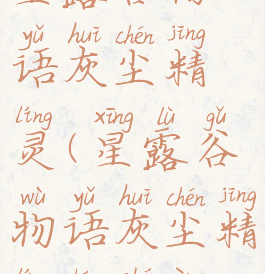 yǔ huī chén jīng
语灰尘精
líng xīng lù gǔ
灵(星露谷
wù yǔ huī chén jīng
物语灰尘精